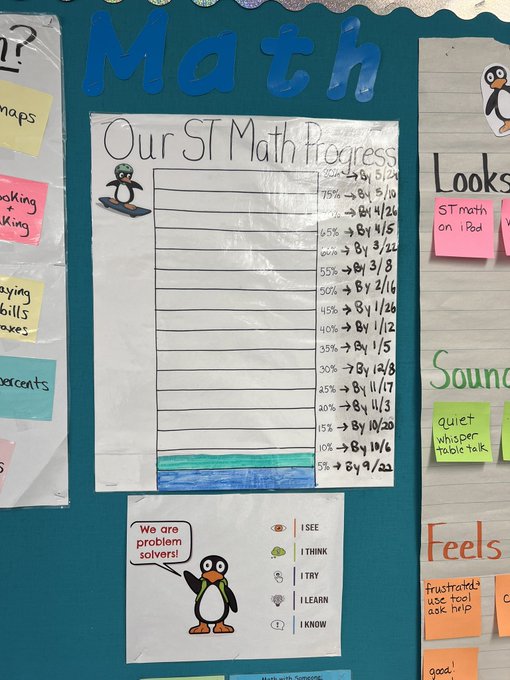 Math
n?
maps
ooking
+
king
aying
bills
axes
percents
s
Our ST Math Progress
80% → By 5/24
75% → By 5/10
70% → By 4/26
65% → By 4/5
60% → By 3/22
55% → By 3/8
50% → By 2/16
45% → By 1/26
40% → By 1/12
35% → By 1/5
30% → By 12/8
25% → By 11/17
20% → By 11/3
15% → By 10/20
10% → By 10/6
5% → By 9/22
We are
problem
solvers!
I SEE
I THINK
I TRY
I LEARN
I KNOW
Math with Someone
Looks
ST math
on iPad
Sound
quiet
whisper
table talk
Feels
frustrated→
use tool
ask help
good!